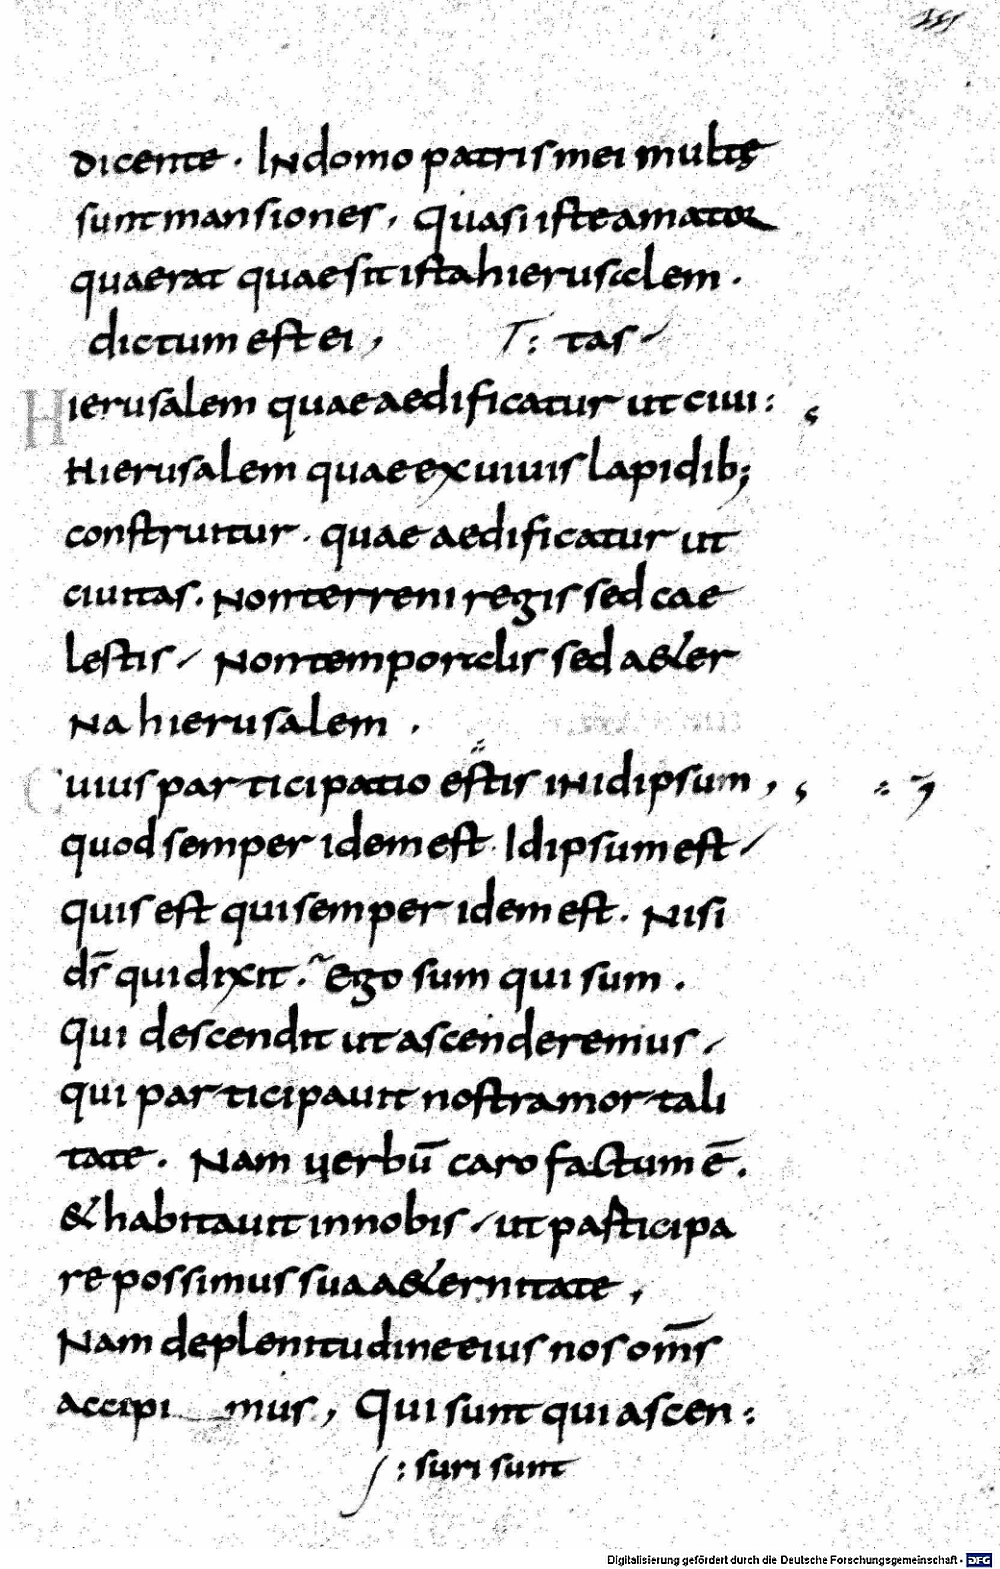 dicente. In domo patris mei multę
sunt mansiones, Quasi iste amator
quaerat quae sit ista hierusalem.
dictum est ei, : tas
Hierusalem quae aedificatur ut ciui:
Hierusalem quae ex uiuis lapidib;
construitur. quae aedificatur ut
ciuitas. Non terreni regis sed cae
lestis / Non temporalis sed aeter
na hierusalem.
Cuius participatio estis in idipsum,
quod semper idem est. Idipsum est /
quis est qui semper idem est. Nisi
dr̄ qui dixit. Ego sum qui sum.
Qui descendit ut ascenderemus /
qui participauit nostra mortali
tate. Nam uerbū caro factum ē.
& habitauit in nobis / ut pasticipa
re possimus sua aeternitate,
Nam de plenitudine eius nos om̄s
accipi mus, Qui sunt qui ascen:
: suri sunt
Digitalisierung gefördert durch die Deutsche Forschungsgemeinschaft - DFG